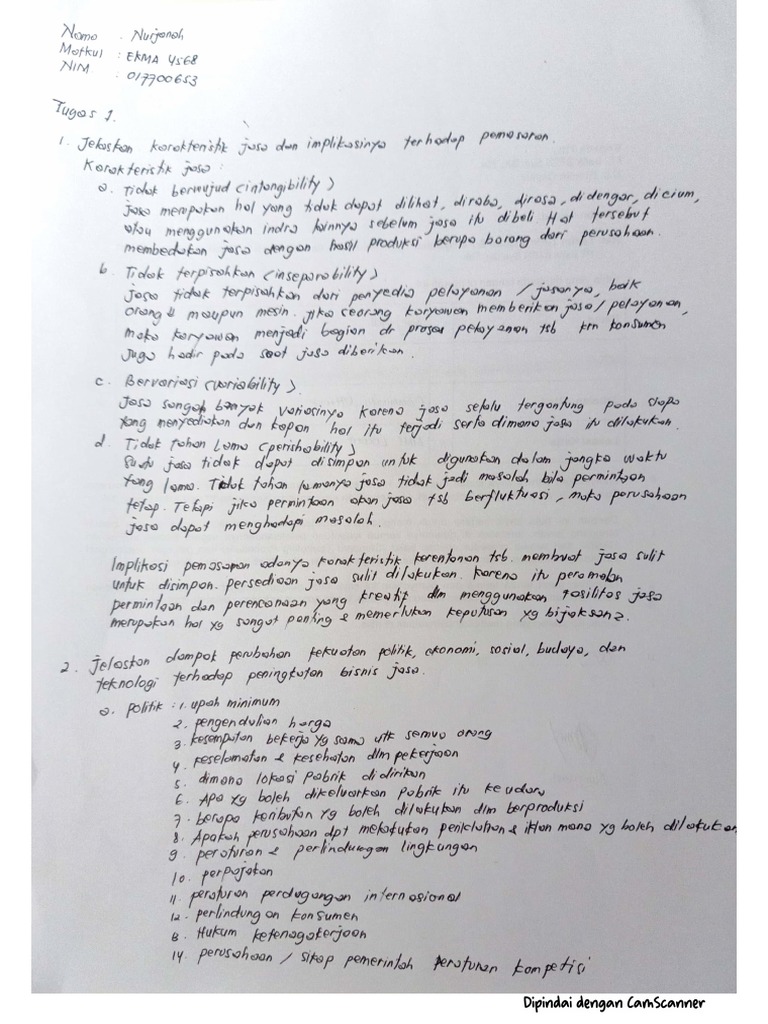 Nama : Nurjanah
Matkul : EKMA 4568
NIM : 017700653
Tugas 1.
1. Jelaskan karakteristik jasa dan implikasinya terhadap pemasaran.
Karakteristik jasa :
a. Tidak berwujud (intangibility)
jasa merupakan hal yang tidak dapat dilihat, diraba, dirasa, didengar, dicium,
atau menggunakan indra lainnya sebelum jasa itu dibeli Hal tersebut
membedakan jasa dengan hasil produksi berupa barang dari perusahaan.
b. Tidak terpisahkan (inseparability)
jasa tidak terpisahkan dari penyedia pelayanan / jasanya, baik
orang maupun mesin. jika seorang karyawan memberikan jasa / pelayanan,
maka karyawan menjadi bagian dr proses pelayanan tsb krn konsumen
juga hadir pada saat jasa diberikan.
c. Bervariasi (variability)
Jasa sangat banyak variasinya karena jasa selalu tergantung pada siapa
yang menyediakan dan kapan hal itu terjadi serta dimana jasa itu dilakukan.
d. Tidak tahan lama (perishability)
Suatu jasa tidak dapat disimpan untuk digunakan dalam jangka waktu
yang lama. Tidak tahan lamanya jasa tidak jadi masalah bila permintaan
tetap. Tetapi jika permintaan akan jasa tsb berfluktuasi, maka perusahaan
jasa dapat menghadapi masalah.
Implikasi pemasaran adanya karakteristik kerentanan tsb. membuat jasa sulit
untuk disimpan. persediaan jasa sulit dilakukan. Karena itu peramalan
permintaan dan perencanaan yang kreatif dlm menggunakan fasilitas jasa
merupakan hal yg sangat penting & memerlukan keputusan yg bijaksana.
2. Jelaskan dampak perubahan kekuatan politik, ekonomi, sosial, budaya, dan
teknologi terhadap peningkatan bisnis jasa.
a. Politik : 1. upah minimum
2. pengendalian harga
3. kesempatan bekerja yg sama utk semua orang
4. keselamatan & kesehatan dlm pekerjaan
5. dimana lokasi pabrik didirikan
6. Apa yg boleh dikeluarkan pabrik itu ke udara
7. berapa keributan yg boleh dilakukan dlm berproduksi
8. Apakah perusahaan dpt melakukan periklanan & iklan mana yg boleh dilakukan
9. peraturan & perlindungan lingkungan
10. perpajakan
11. peraturan perdagangan internasional
12. perlindungan konsumen
13. Hukum ketenagakerjaan
14. perusahaan / sikap pemerintah peraturan kompetisi
Dipindai dengan CamScanner